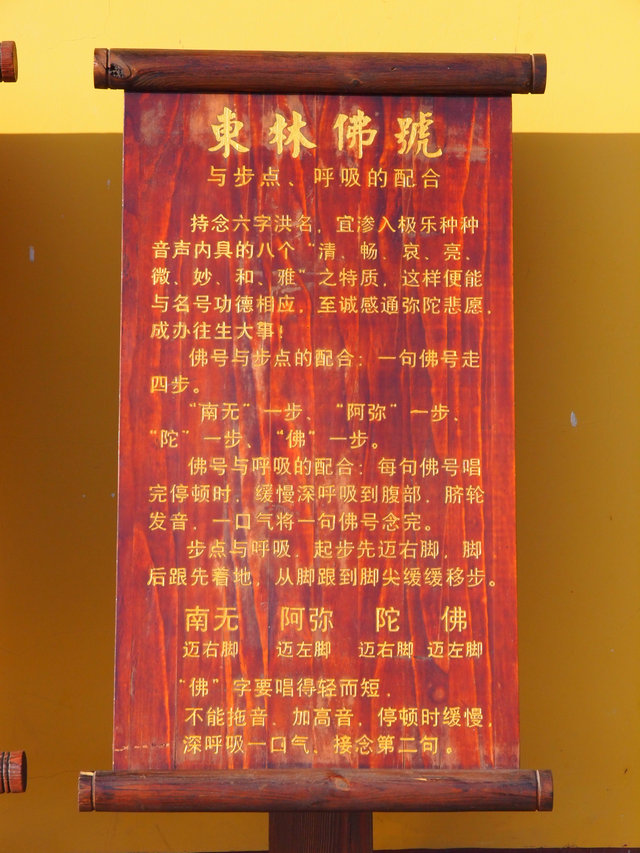 東林佛號
与步点、呼吸的配合
持念六字洪名，宜渗入极乐种种
音声内具的八个“清、畅、哀、亮、
微、妙、和、雅”之特质，这样便能
与名号功德相应，至诚感通弥陀悲愿，
成办往生大事！
佛号与步点的配合：一句佛号走
四步。
“南无”一步、“阿弥”一步、
“陀”一步、“佛”一步。
佛号与呼吸的配合：每句佛号唱
完停顿时，缓慢深呼吸到腹部，脐轮
发音，一口气将一句佛号念完。
步点与呼吸，起步先迈右脚，脚
后跟先着地，从脚跟到脚尖缓缓移步。
南无 阿弥 陀 佛
迈右脚 迈左脚 迈右脚 迈左脚
“佛”字要唱得轻而短，
不能拖音、加高音，停顿时缓慢，
深呼吸一口气、接念第二句。